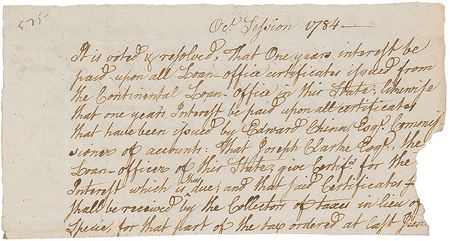 5755
Oct. Session 1784
It is voted & resolved, That One years interest be
paid upon all Loan-office certificates issued from
the Continental Loan-Office in this State; Likewise
that one years Interest be paid upon all certificates
that have been issued by Edward Chinn, Esqr. Commis
sioner of accounts: That Joseph Clarke Esqr. the
Loan-officer of this State, give Certifs. for the
Interest which is thus due; and that said Certificates
shall be received by the Collectors of taxes in lieu of
Specie, for that part of the tax ordered at last June